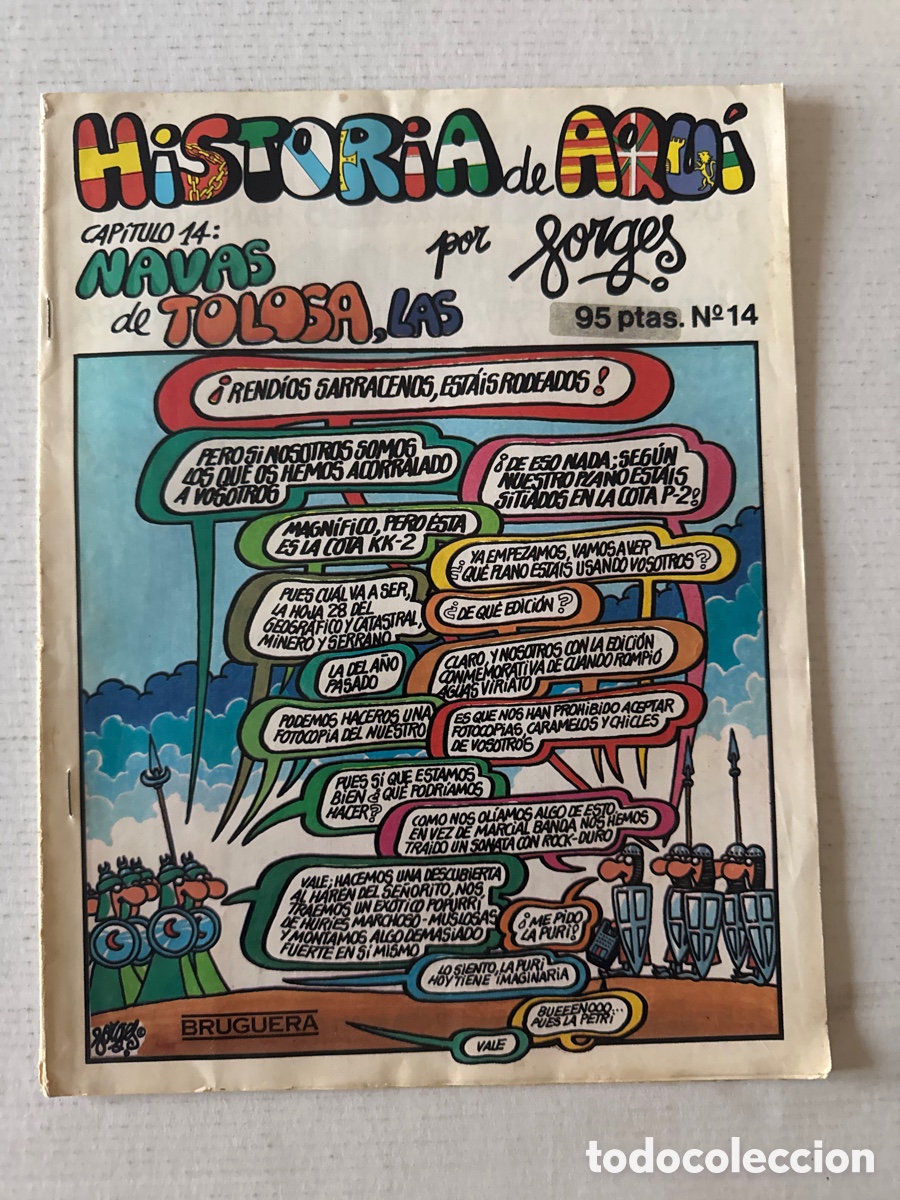 HiSTORiA de AQUÍ
CAPÍTULO 14:
por forges
NAVAS
de TOLOSA, LAS
95 ptas. Nº 14
¡RENDÍOS SARRACENOS, ESTÁIS RODEADOS!
PERO SI NOSOTROS SOMOS
LOS QUE OS HEMOS ACORRALADO
A VOSOTROS
¡DE ESO NADA; SEGÚN
NUESTRO PLANO ESTÁIS
SITIADOS EN LA COTA P-2!
MAGNÍFICO, PERO ÉSTA
ES LA COTA KK-2
¿YA EMPEZAMOS, VAMOS A VER
QUÉ PLANO ESTÁIS USANDO VOSOTROS?
PUES CUÁL VA A SER,
LA HOJA 28 DEL
GEOGRÁFICO Y CATASTRAL,
MINERO Y SERRANO
¿DE QUÉ EDICIÓN?
LA DEL AÑO
PASADO
CLARO, Y NOSOTROS CON LA EDICIÓN
CONMEMORATIVA DE CUANDO ROMPIÓ
AGUAS VIRIATO
PODEMOS HACEROS UNA
FOTOCOPIA DEL NUESTRO
ES QUE NOS HAN PROHIBIDO ACEPTAR
FOTOCOPIAS, CARAMELOS Y CHICLES
DE VOSOTROS
PUES SÍ QUE ESTAMOS
BIEN ¿QUÉ PODRÍAMOS
HACER?
COMO NOS OLÍAMOS ALGO DE ESTO
EN VEZ DE MARCIAL BANDA NOS HEMOS
TRAÍDO UN SONATA CON ROCK-DURO
VALE; HACEMOS UNA DESCUBIERTA
AL HARÉN DEL SEÑORITO, NOS
TRAEMOS UN EXÓTICO POPURRÍ
DE HURÍES MARCHOSO-MUSLOSAS
Y MONTAMOS ALGO DEMASIADO
FUERTE EN SÍ MISMO
¡ME PIDO
LA PURI!
LO SIENTO, LA PURI
HOY TIENE IMAGINARIA
BUEEENOOO...
PUES LA PETRI
VALE
forges
BRUGUERA
todocoleccion